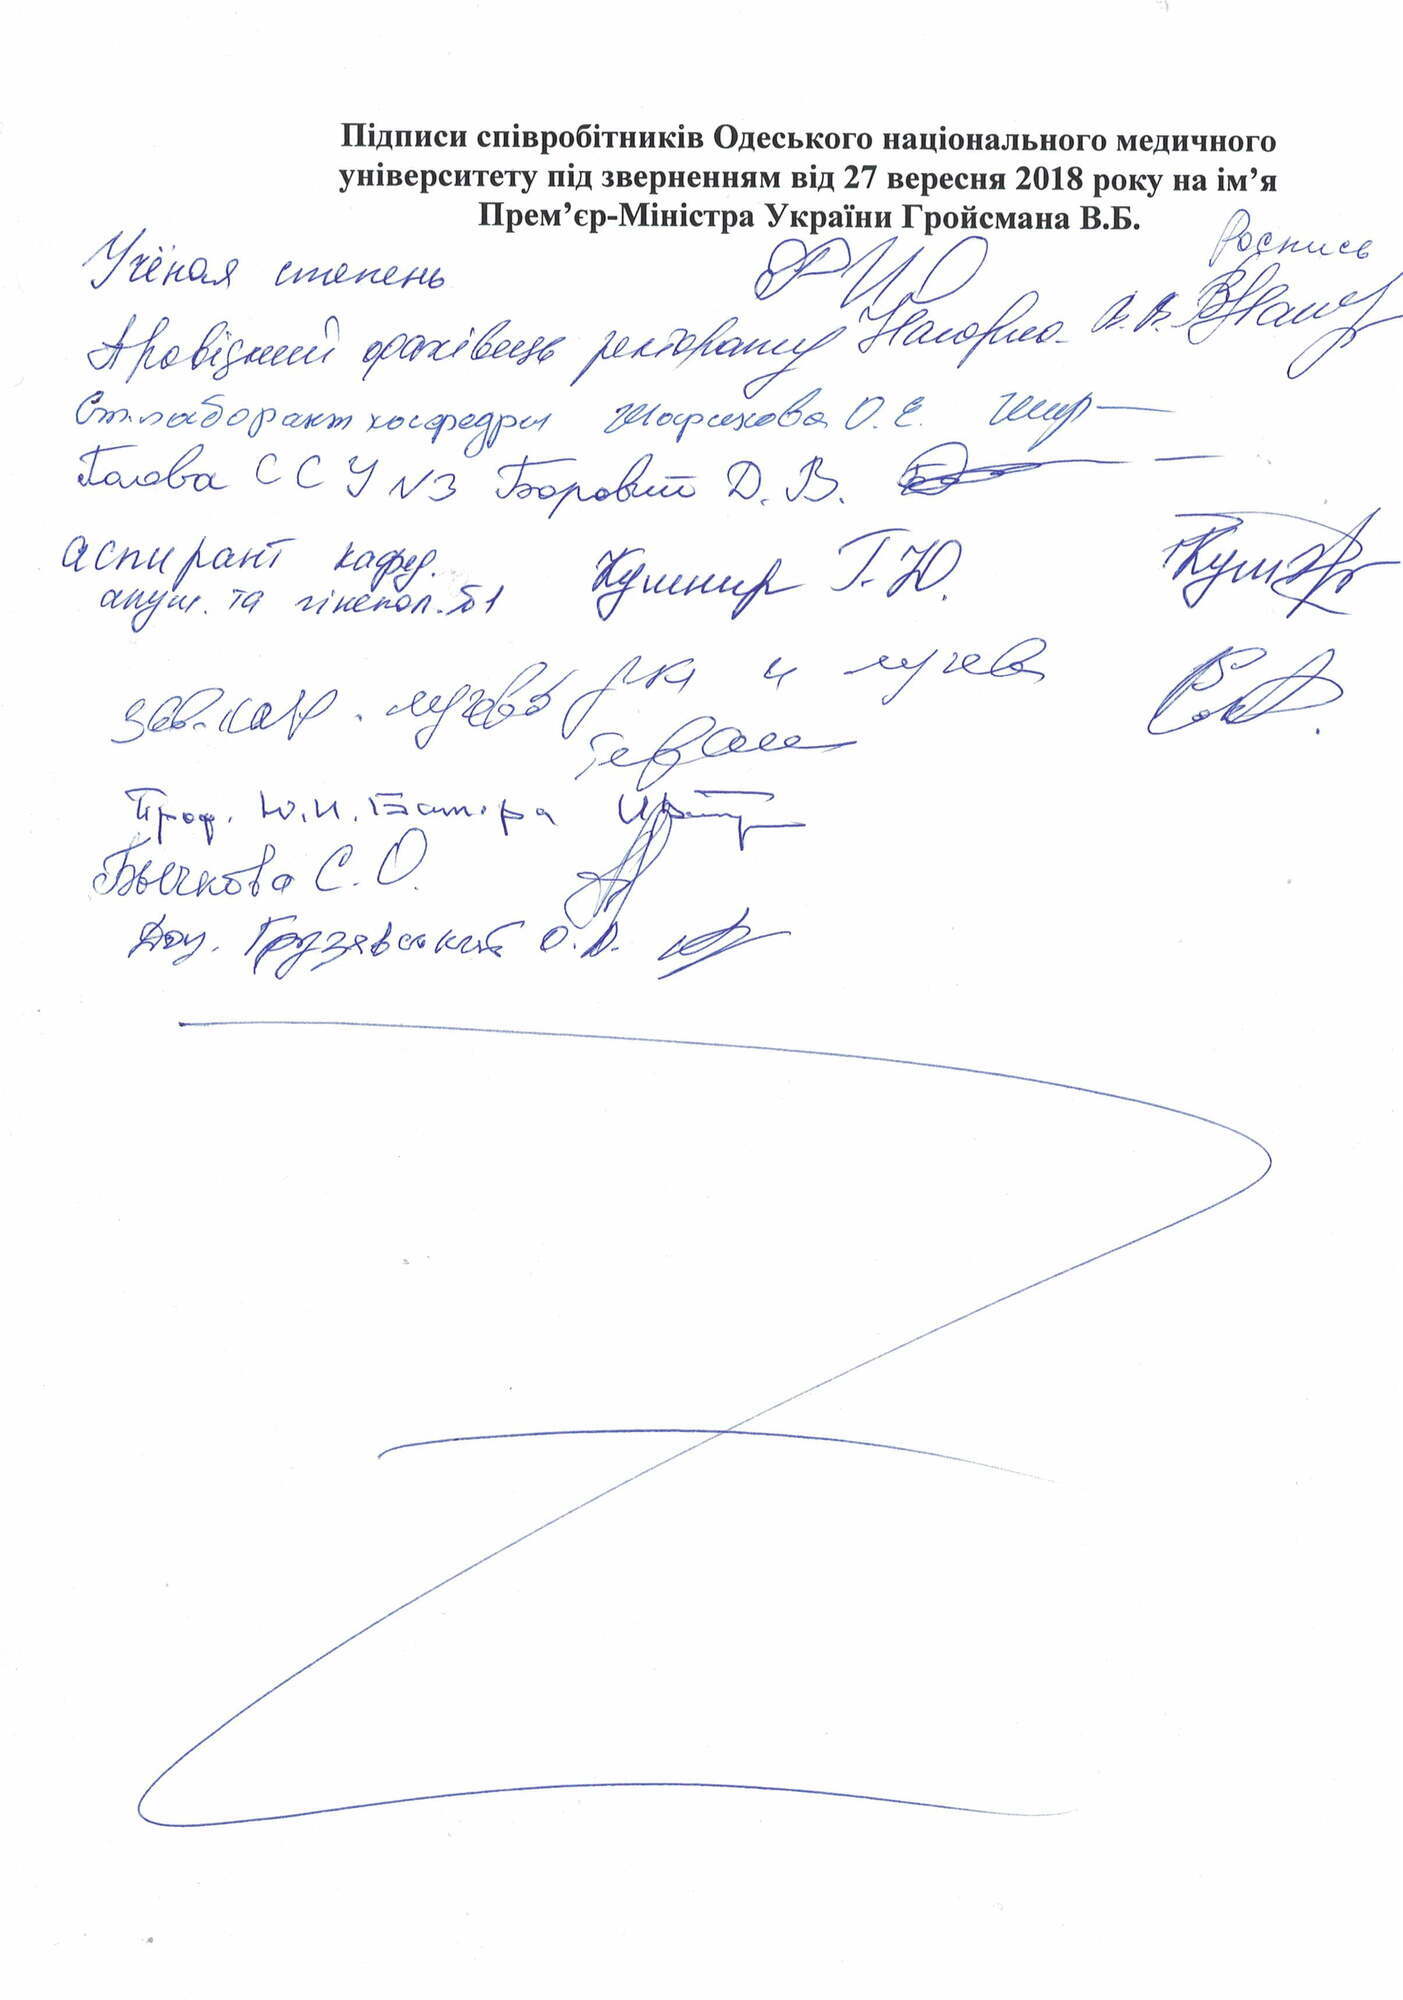 Підписи співробітників Одеського національного медичного
університету під зверненням від 27 вересня 2018 року на ім’я
Прем’єр-Міністра України Гройсмана В.Б.
Учёная степень ФИО Роспись
Провідний фахівець ректорату В.В.
Ст. лаборант кафедри О.Е.
Голова ССУ №3 Боровит Д.В.
аспирант кафед. Кушнир Г.Ю.
акуш. та гінекол. №1
зав. каф.
Проф. Ю.И.
Бычкова С.О.
Доц. Грузевський О.А.